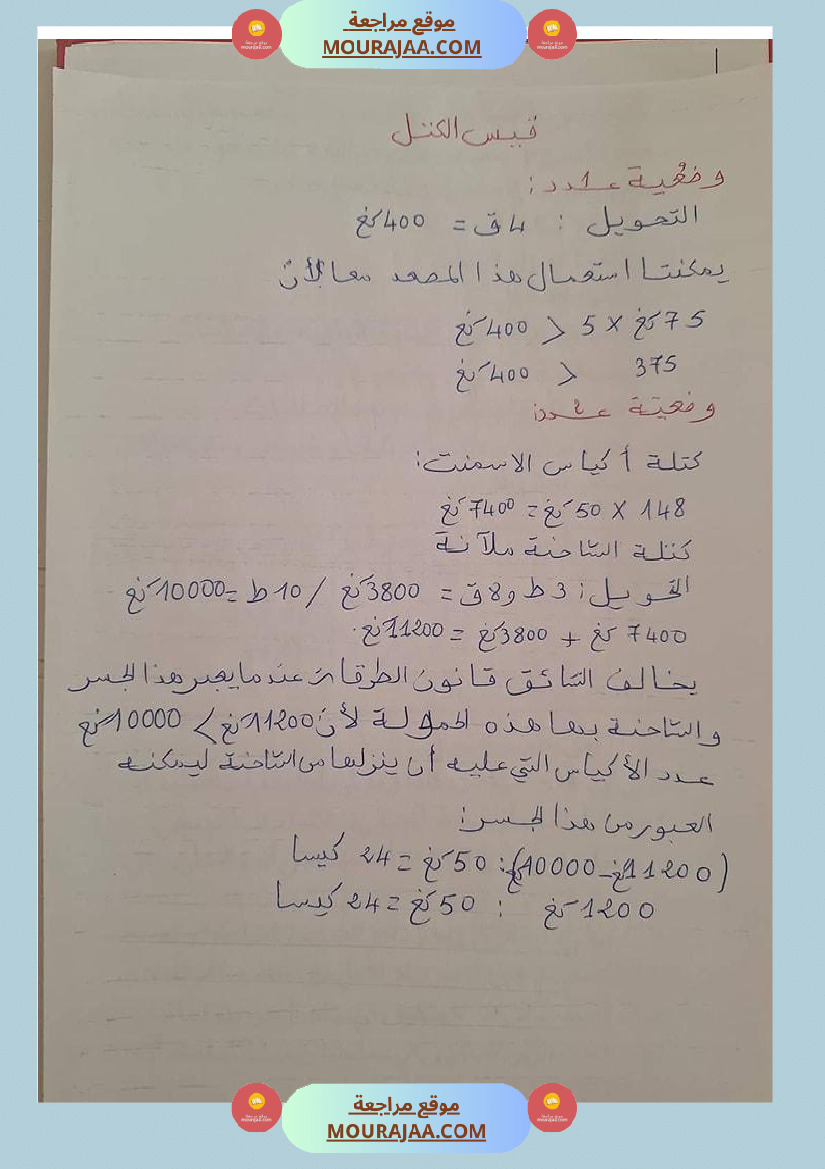 موقع مراجعة
MOURAJAA.COM
قيس الكتل
وضعية عـ1ـدد :
التحويل : 4ق = 400كغ
يمكننا استعمال هذا المصعد معا لأنّ
75كغ X 5 < 400كغ
375 < 400كغ
وضعيّة عـ2ـدد:
كتلة أكياس الاسمنت:
148 X 50كغ = 7400كغ
كتلة الشاحنة ملآنة
التحويل: 3ط و8ق = 3800كغ / 10ط = 10000كغ
7400 كغ + 3800كغ = 11200كغ.
يخالف السّائق قانون الطرقات عندما يعبر هذا الجسر
والشّاحنة بها هذه الحمولة لأن 11200كغ > 10000كغ
عدد الأكياس التي عليه أن ينزلها من الشّاحنة ليمكنه
العبور من هذا الجسر:
(11200كغ - 10000كغ) : 50كغ = 24 كيسا
1200كغ : 50كغ = 24 كيسا
موقع مراجعة
MOURAJAA.COM